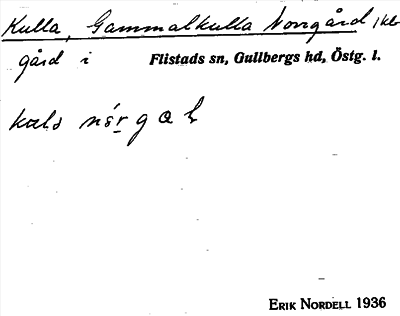 Kulla, Gammalkulla Norrgård, kl.
gård i Flistads sn, Gullbergs hd, Östg. l.
ERIK NORDELL 1936